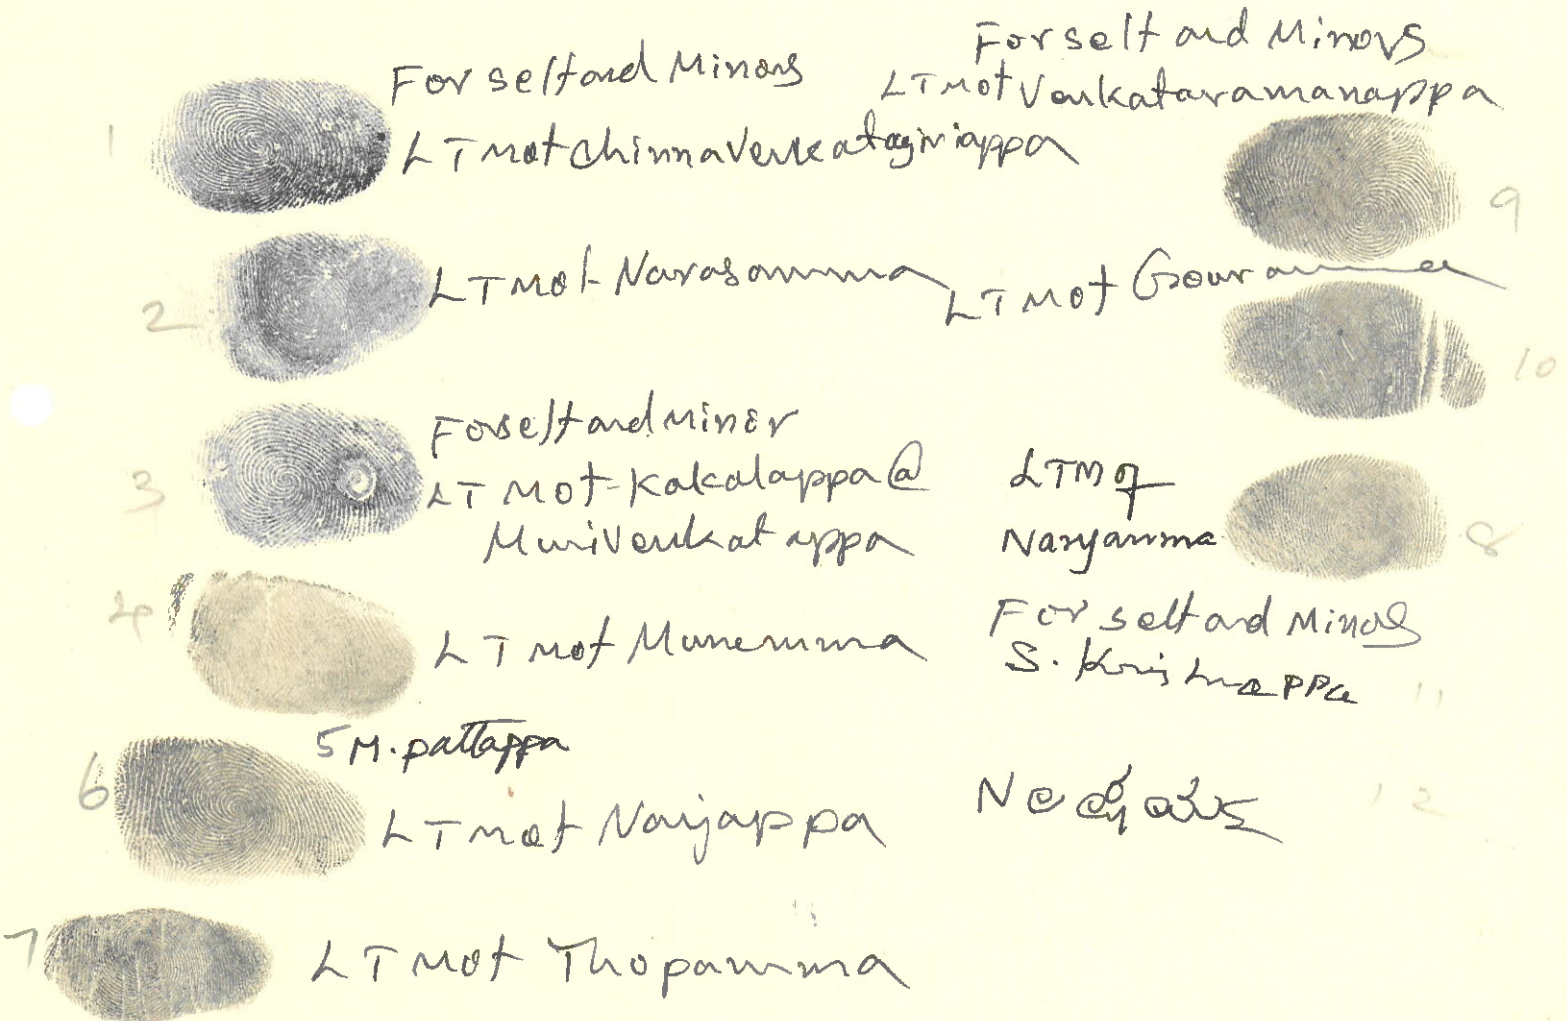 1
For self and Minors
LTM of ChinnaVenkatagiriappa
2
LTM of Narasamma
3
For self and Minor
LTM of Kakalappa @
Munivenkatappa
4
LTM of Munemma
5 M. pattappa
6
LTM of Nanjappa
7
LTM of Thopamma
For self and Minors
LTM of Venkataramanappa
9
LTM of Gouramma
10
LTM of
Nanjamma
8
For self and Minors
S. Krishnappa
11
12